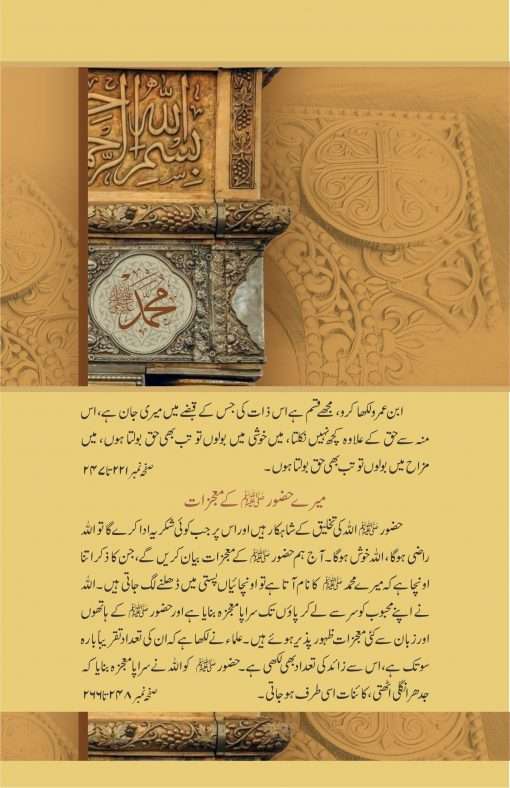 بسم الله الرحمن
محمد
ابن عمرو لکھا کرو، مجھے قسم ہے اس ذات کی جس کے قبضے میں میری جان ہے، اس
منہ سے حق کے علاوہ کچھ نہیں نکلتا، میں خوشی میں بولوں تو تب بھی حق بولتا ہوں، میں
مزاح میں بولوں تو تب بھی حق بولتا ہوں۔ صفحہ نمبر ۲۲۱ تا ۲۴۷
میرے حضور ﷺ کے معجزات
حضور ﷺ اللہ کی تخلیق کے شاہکار ہیں اور اس پر جب کوئی شکریہ ادا کرے گا تو اللہ
راضی ہوگا، اللہ خوش ہوگا۔ آج ہم حضور ﷺ کے معجزات بیان کریں گے، جن کا ذکر اتنا
اونچا ہے کہ میرے محمد ﷺ کا نام آتا ہے تو اونچائیاں پستی میں ڈھلنے لگ جاتی ہیں۔ اللہ
نے اپنے محبوب کو سر سے لے کر پاؤں تک سراپا معجزہ بنایا ہے اور حضور ﷺ کے ہاتھوں
اور زبان سے کئی معجزات ظہور پذیر ہوئے ہیں۔ علماء نے لکھا ہے کہ ان کی تعداد تقریباً بارہ
سو تک ہے، اس سے زائد کی تعداد بھی لکھی ہے۔ حضور ﷺ کو اللہ نے سراپا معجزہ بنایا کہ
جدھر انگلی اٹھتی، کائنات اسی طرف ہو جاتی۔ صفحہ نمبر ۲۴۸ تا ۲۶۶